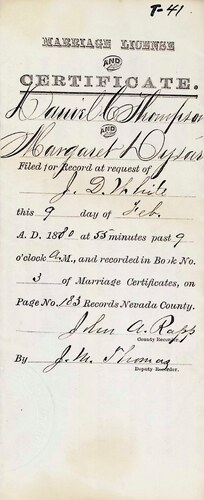 T-41
MARRIAGE LICENSE
AND
CERTIFICATE.
Daniel C Thompson
AND
Margaret Dysar
Filed for Record at request of
J. D. White
this 9 day of Feb.
A. D. 1880 at 55 minutes past 9
o'clock A.M., and recorded in Book No.
3 of Marriage Certificates, on
Page No. 183 Records Nevada County.
John A. Rapp
County Recorder.
By J. M. Thomas
Deputy Recorder.